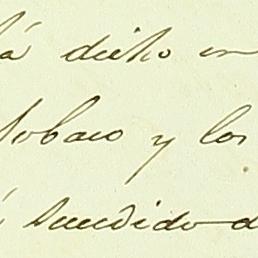 á dicho en
tobaco y los
sucedido d